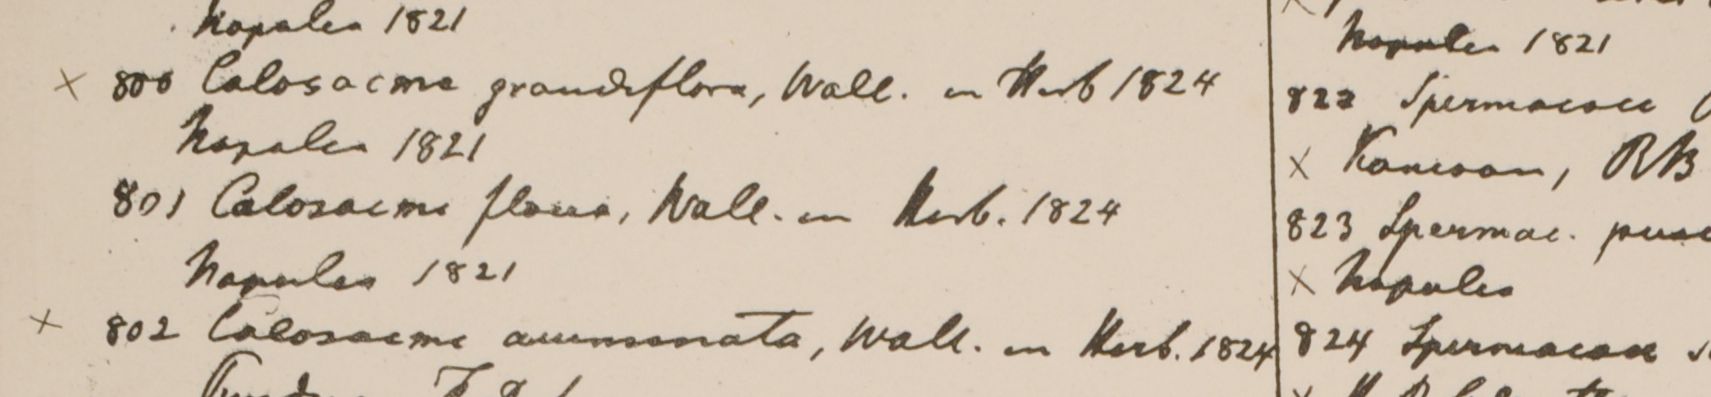 Napalea 1821
× 800 Calosacme grandiflora, Wall. in Herb 1824
Napalea 1821
801 Calosacme flava, Wall. in Herb. 1824
Napalea 1821
× 802 Calosacme acuminata, Wall. in Herb. 1824
Napalea 1821
822 Spermacoce
× RB
823 Spermac.
× Napalea
824 Spermacoce